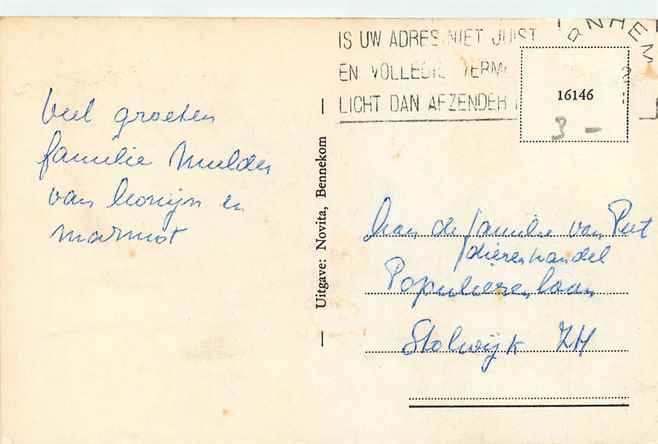 IS UW ADRES NIET JUIST
EN VOLLEDIG VERM
LICHT DAN AFZENDER
RNHEM
16146
3 -
Veel groeten
familie Mulder
van konijn en
marmot
Uitgave: Novita, Bennekom
Aan de familie van Pelt
dierenhandel
Populierenlaan
Stolwijk ZH